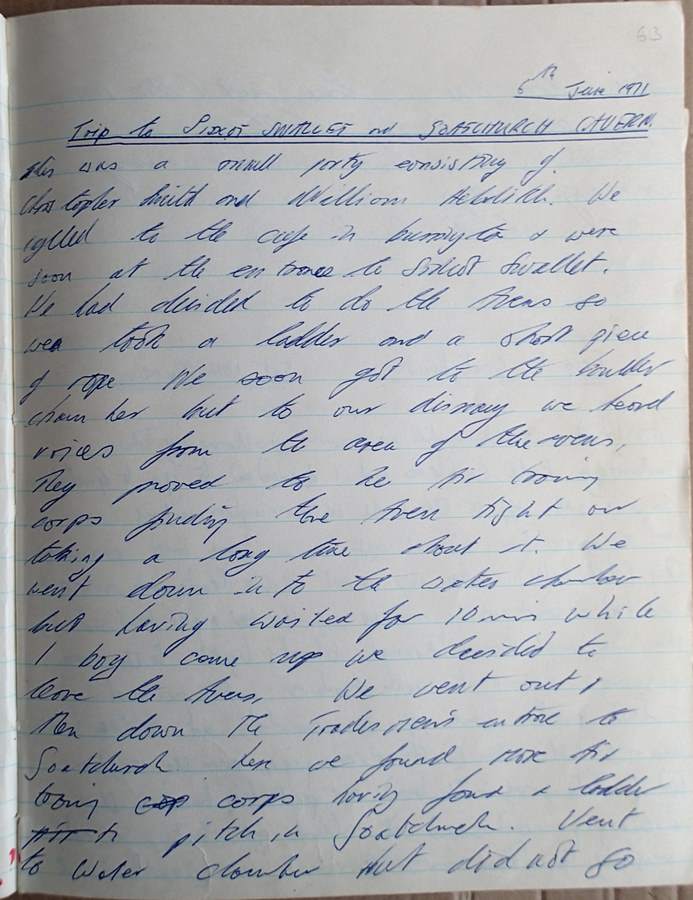 63
6th June 1971
Trip to Sidcot SWALLET and GOATCHURCH CAVERN.
This was a small party consisting of
Christopher Smith and William . We
cycled to the cafe in & were
soon at the entrance to Sidcot Swallet.
We had decided to do the Avens so
we took a ladder and a short piece
of rope We soon got to the boulder
chamber but to our dismay we heard
voices from the area of the avens,
They proved to be Air traing
corps finding the Aven tight and
taking a long time about it. We
went down in to the water chamber
but having waited for 10 mins while
1 boy came up we decided to
leave the Avens, We went out &
then down the Tradesmens entrance to
Goatchurch here we found more Air
traing corps having found a ladder
pitch in Goatchurch. Went
to Water chamber but did not go